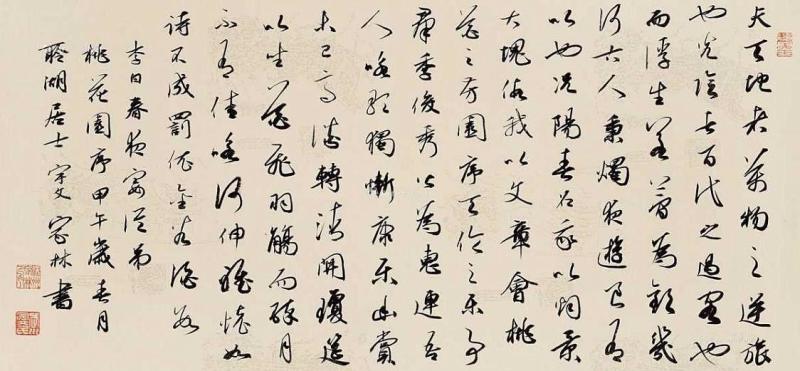 夫天地者萬物之逆旅
也光陰者百代之過客也
而浮生若夢為歡幾
何古人秉燭夜遊良有
以也況陽春召我以烟景
大塊假我以文章會桃
花之芳園序天倫之樂事
羣季俊秀以為惠連吾
人咏歌獨慚康樂幽賞
未已高談轉清開瓊筵
以坐花飛羽觴而醉月
不有佳咏何伸雅懷如
詩不成罰依金谷酒數
李白春夜宴從弟
桃花園序甲午歲春月
聆湖居士宇文家林書